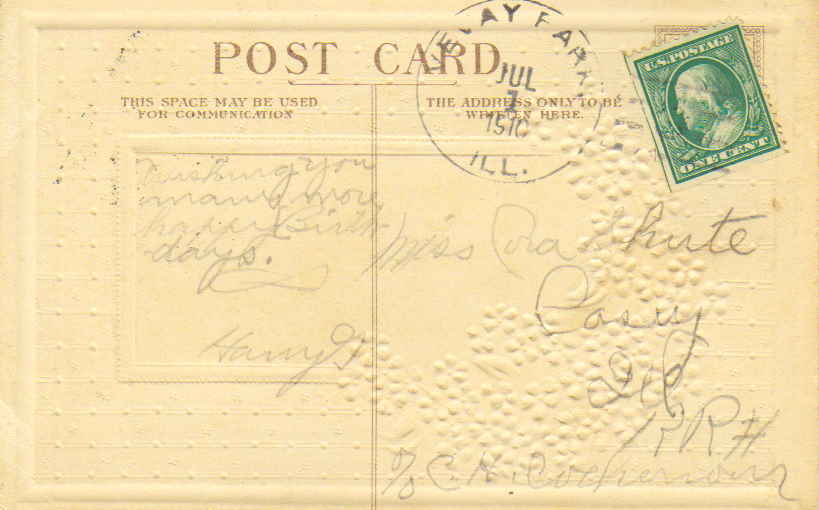 POST CARD
THIS SPACE MAY BE USED
FOR COMMUNICATION
THE ADDRESS ONLY TO BE
WRITTEN HERE.
JUL
1
1910
ILL.
U.S. POSTAGE
ONE CENT
Wishing you
many more
happy Birth
days.
Harry
Miss Cora Shute
Casey
Ill
R R #
c/o C. H.